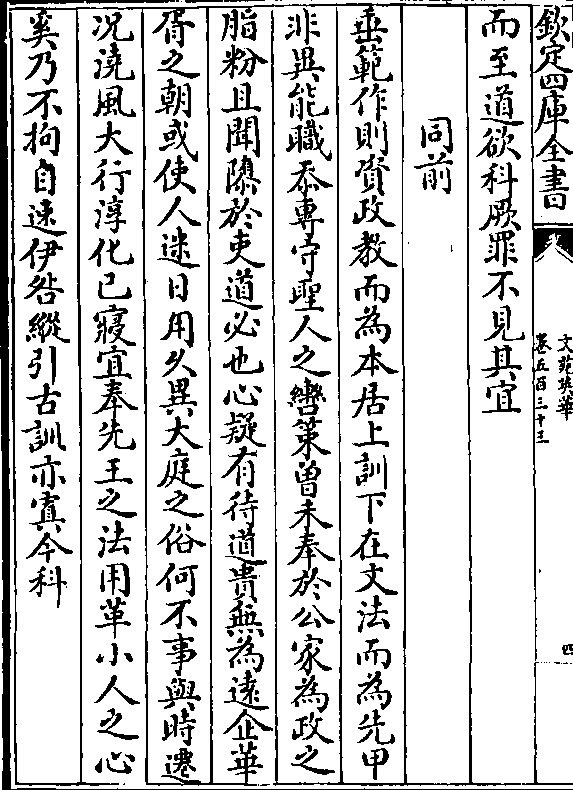 欽定四庫全書
文苑英華
卷五百三十三
四
而至道欲科厥罪不見其宜
同前
垂範作則資政教而為本居上訓下在文法而為先甲
非異能職忝專守聖人之轡策曽未奉於公家為政之
脂粉且聞隳於吏道必也心疑有待道貴無為遠企華
胥之朝或使人迷日用乆異大庭之俗何不事與時遷
况澆風大行淳化已寢宜奉先王之法用革小人之心
奚乃不拘自速伊咎縱引古訓亦寘今科